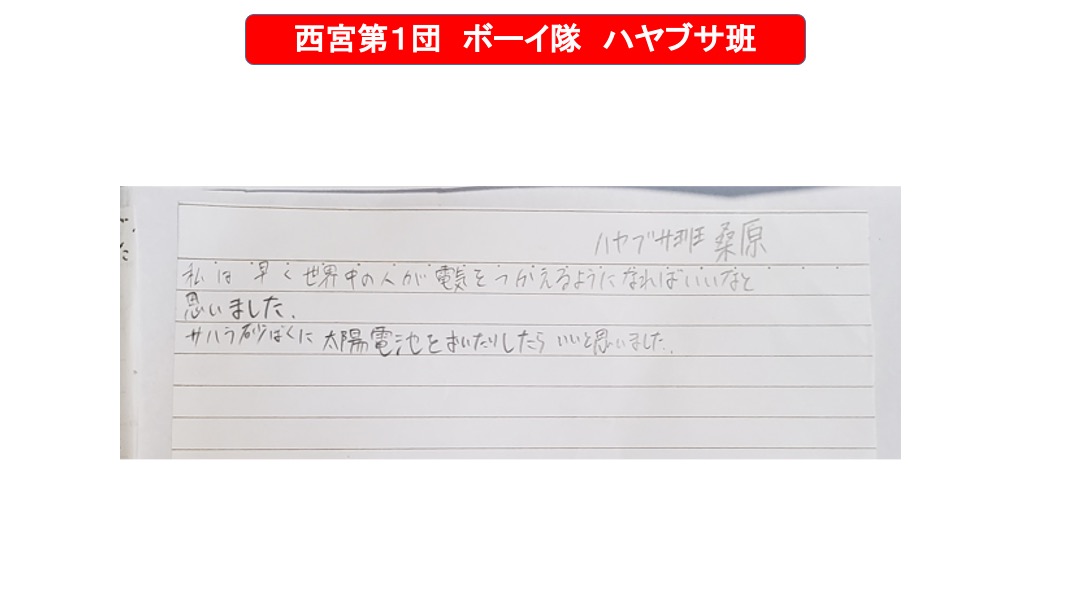 西宮第１団　ボーイ隊　ハヤブサ班
ハヤブサ班 桑原
私は早く世界中の人が電気をつかえるようになればいいなと
思いました。
サハラ砂ばくに太陽電池をおいたりしたらいいと思いました。